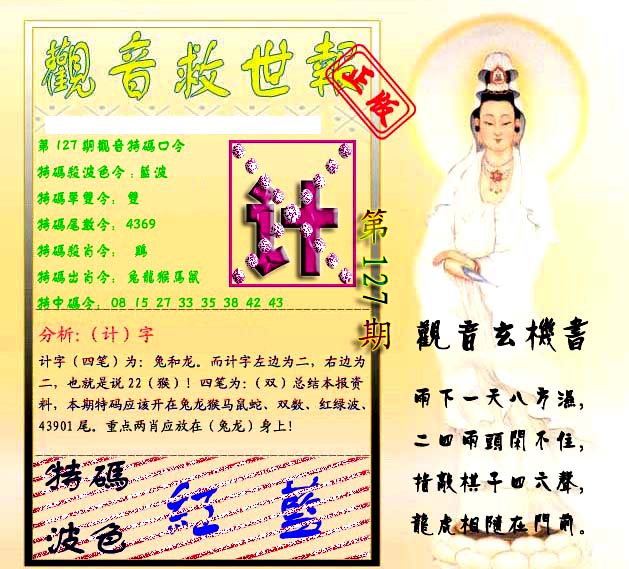 觀音救世報
正版
第127期觀音特碼口令
特碼殺波色令:藍波
特碼單雙令: 雙
特碼尾數令: 4369
特碼殺肖令: 鷄
特碼出肖令: 兔龍猴馬鼠
特中碼令: 08 15 27 33 35 38 42 43
计
第127期
分析:(计)字
计字(四笔)为:兔和龙。而计字左边为二,右边为
二,也就是说22(猴)!四笔为:(双)总结本报资
料,本期特码应该开在兔龙猴马鼠蛇、双数、红绿波、
43901尾。重点两肖应放在(兔龙)身上!
特碼
波色
紅 藍
觀音玄機書
雨下一天八方濕,
二四兩頭關不住,
指敲棋子四六聲,
龍虎相隨在門前。